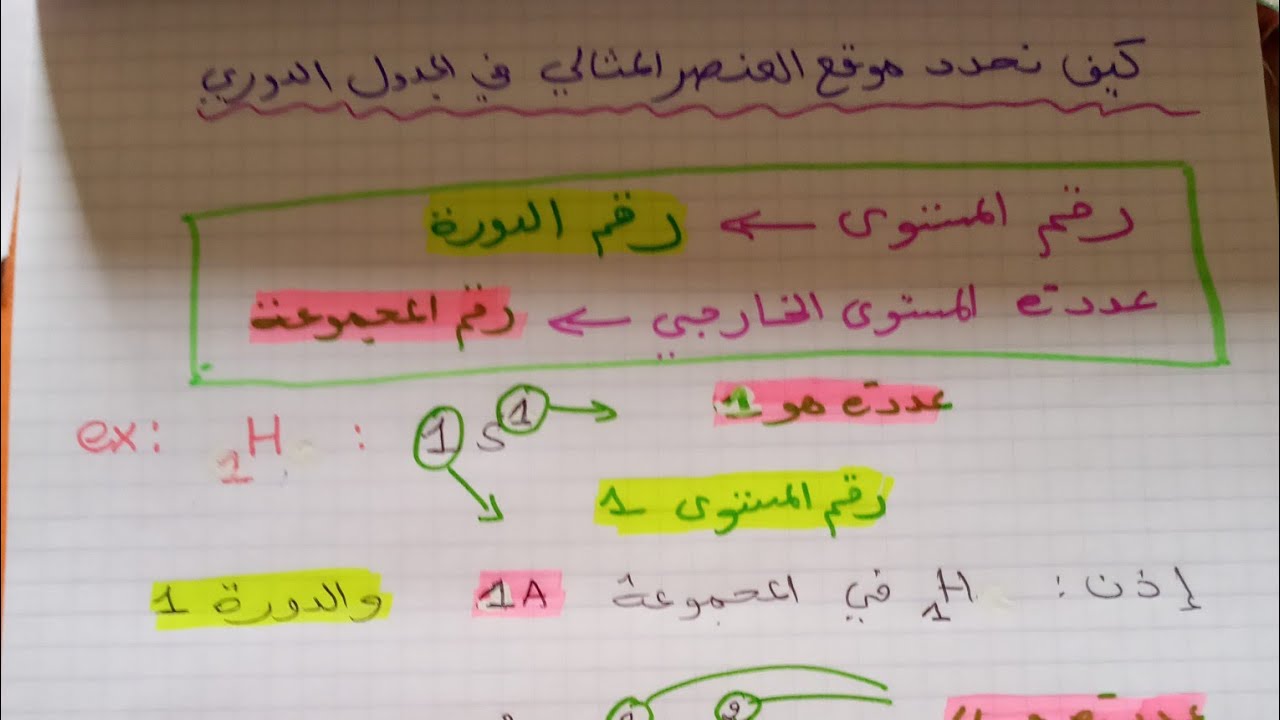 كيف نحدد موقع العنصر المثالي في الجدول الدوري
رقم المستوى ← رقم الدورة
عدد e⁻ المستوى الخارجي ← رقم المجموعة
ex: ₁H : 1s¹ → عدد e⁻ هو 1
رقم المستوى 1
إذن: ₁H في المجموعة 1A والدورة 1
2